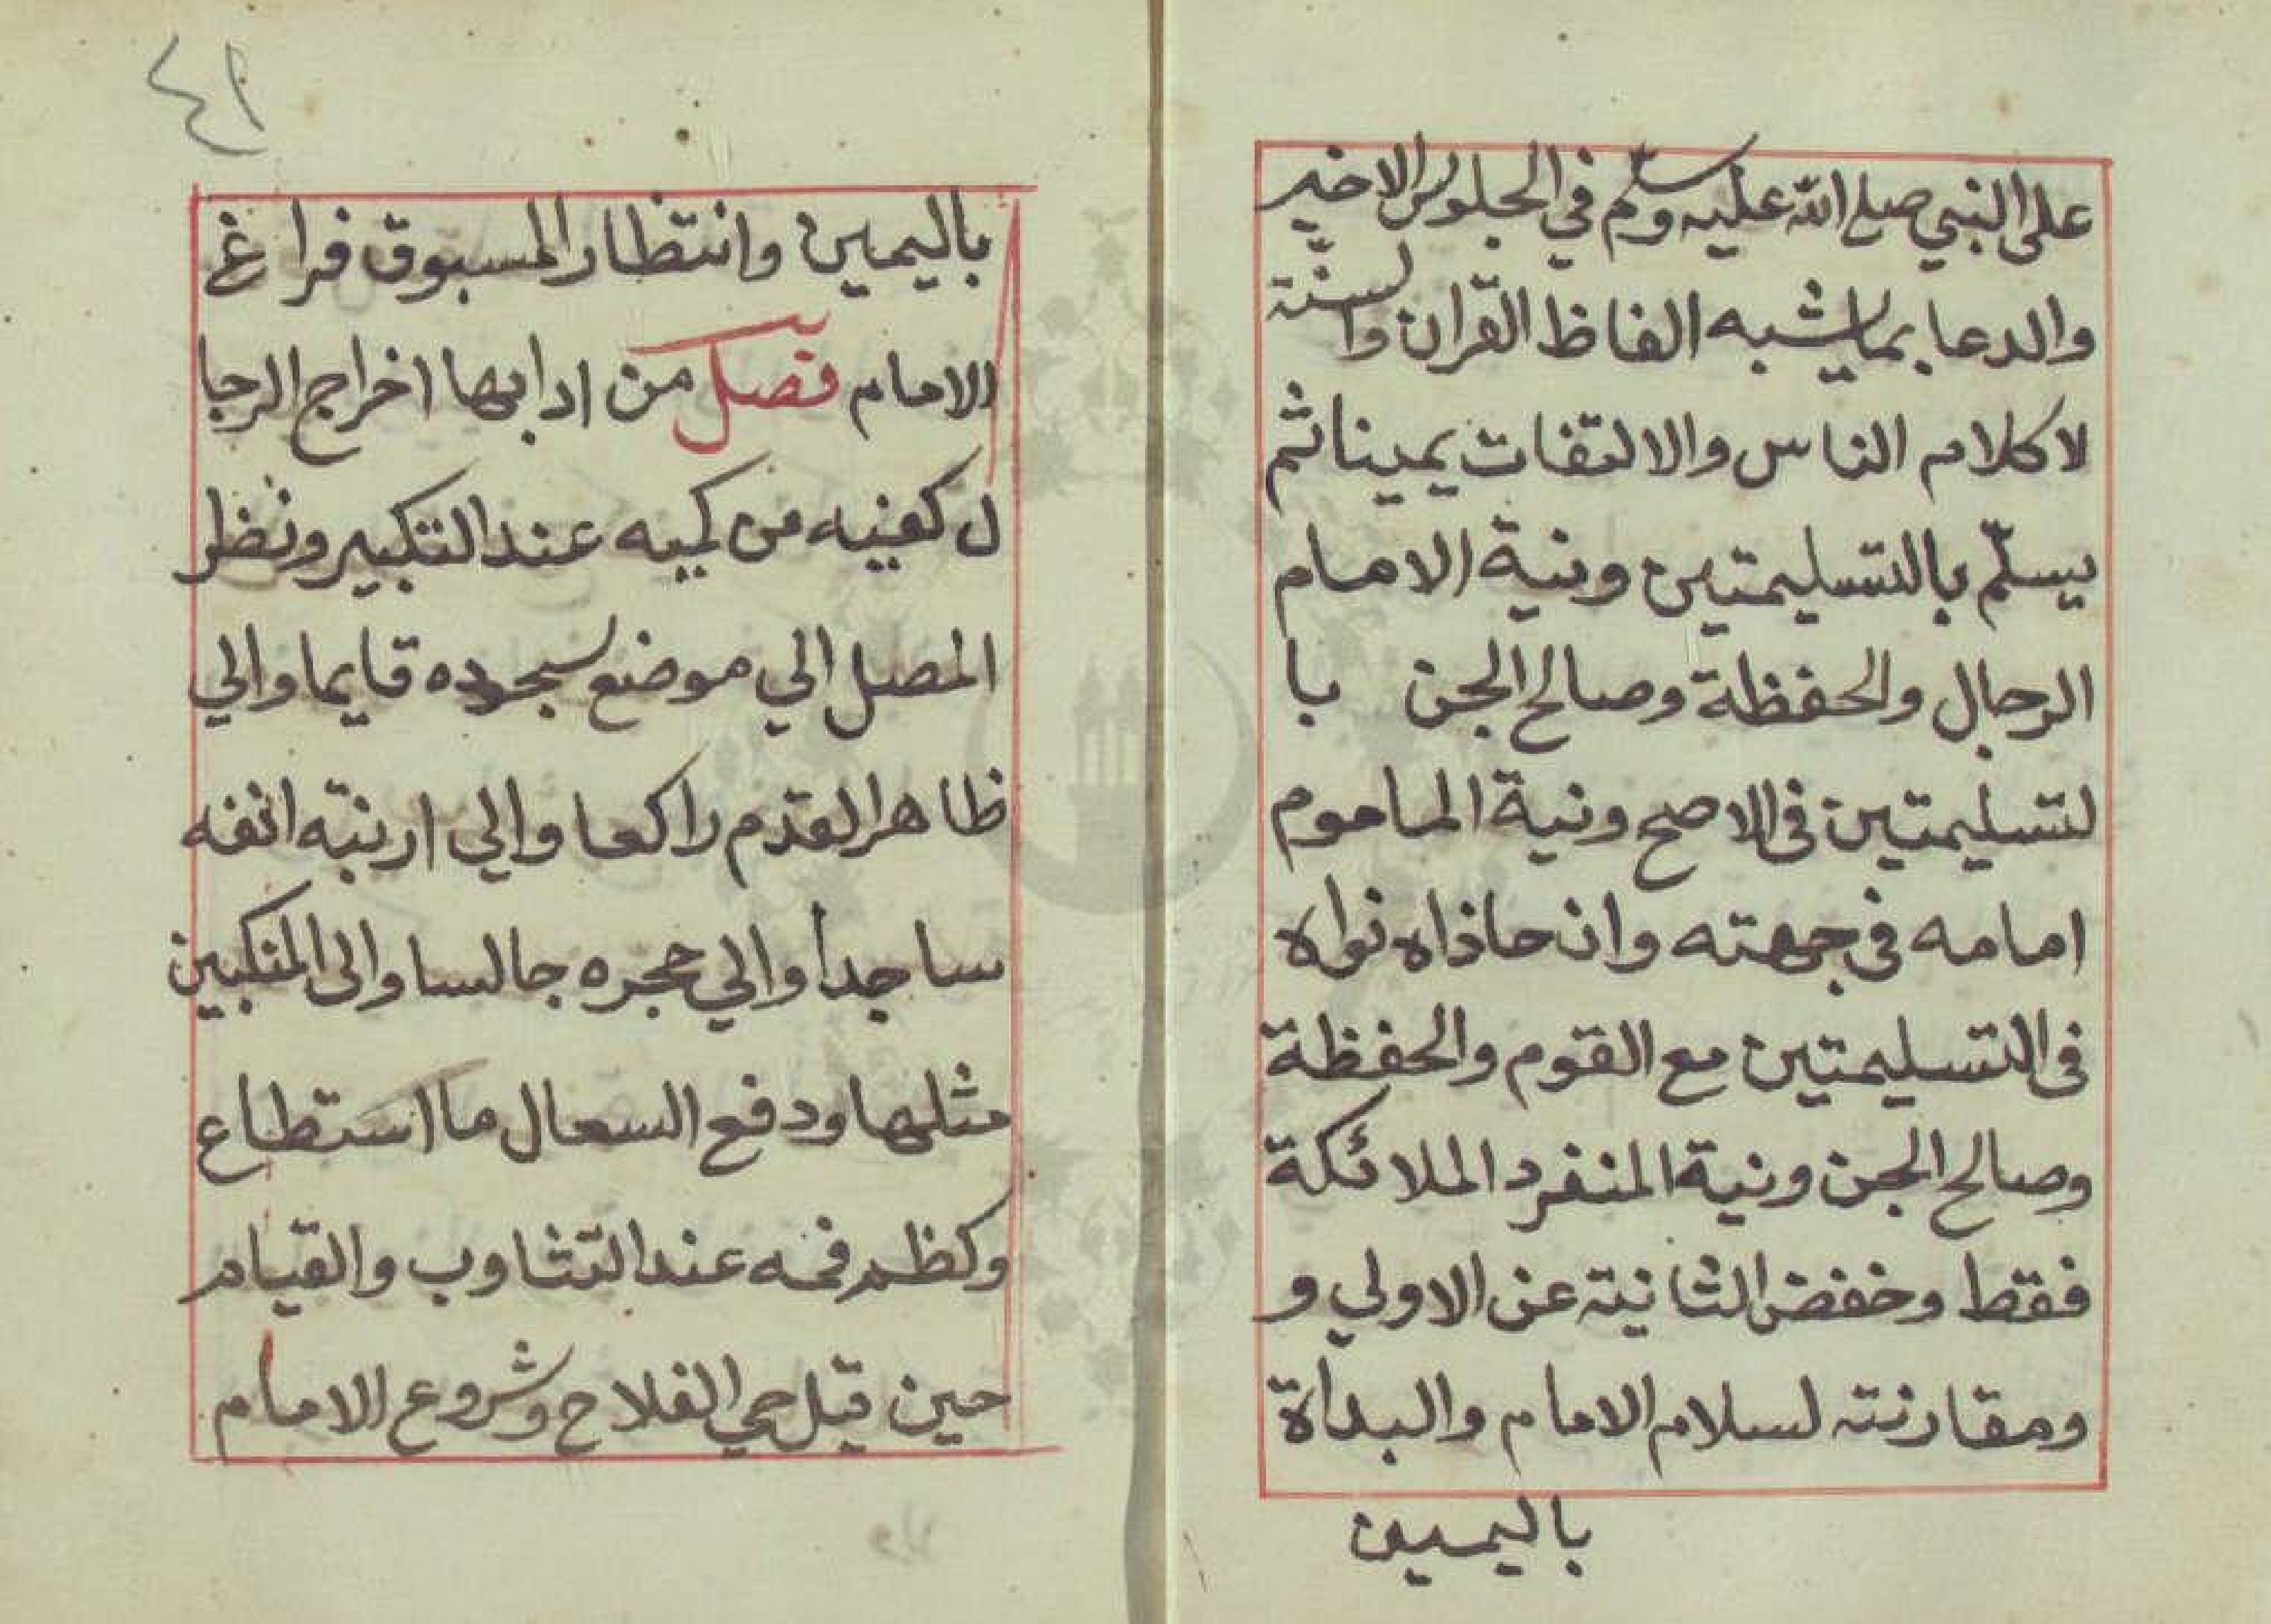 على النبي صلى الله عليه وسلم في الجلوس الاخير
والدعا بما يشبه الفاظ القران والسنة
لا كلام الناس والالتفات يمينا ثم
يسلّم بالتسليمتين ونية الامام
الرجال والحفظة وصالح الجن با
لتسليمتين فى الاصح ونية الماموم
امامه فى جهته وان حاذاه نواه
فى التسليمتين مع القوم والحفظة
وصالح الجن ونية المنفرد الملائكة
فقط وخفض الثانية عن الاولي و
ومقارنته لسلام الامام والبدأة
باليمين
٤١
باليمين وانتظار المسبوق فراغ
الامام فصل من ادابها اخراج الرجا
ل كفيه من كميه عند التكبير ونظر
المصلي الي موضع سجوده قايما والي
ظاهر القدم راكعا والي ارنبة انفه
ساجدا والي حجره جالسا والى المنكبين
مثلها ودفع السعال ما استطاع
وكظم فمه عند التثاوب والقيام
حين قيل حي الفلاح وشروع الامام